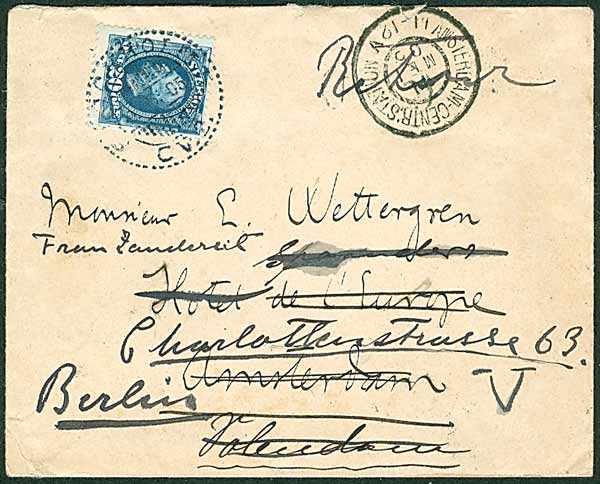 AMSTERDAM-CENTR:STATION
11-12
Retour
Monsieur E. Wettergren
Frau Zandereit
Spaanders
Hotel de l'Europe
Charlottenstrasse 63.
Amsterdam
V
Berlin
Volendam